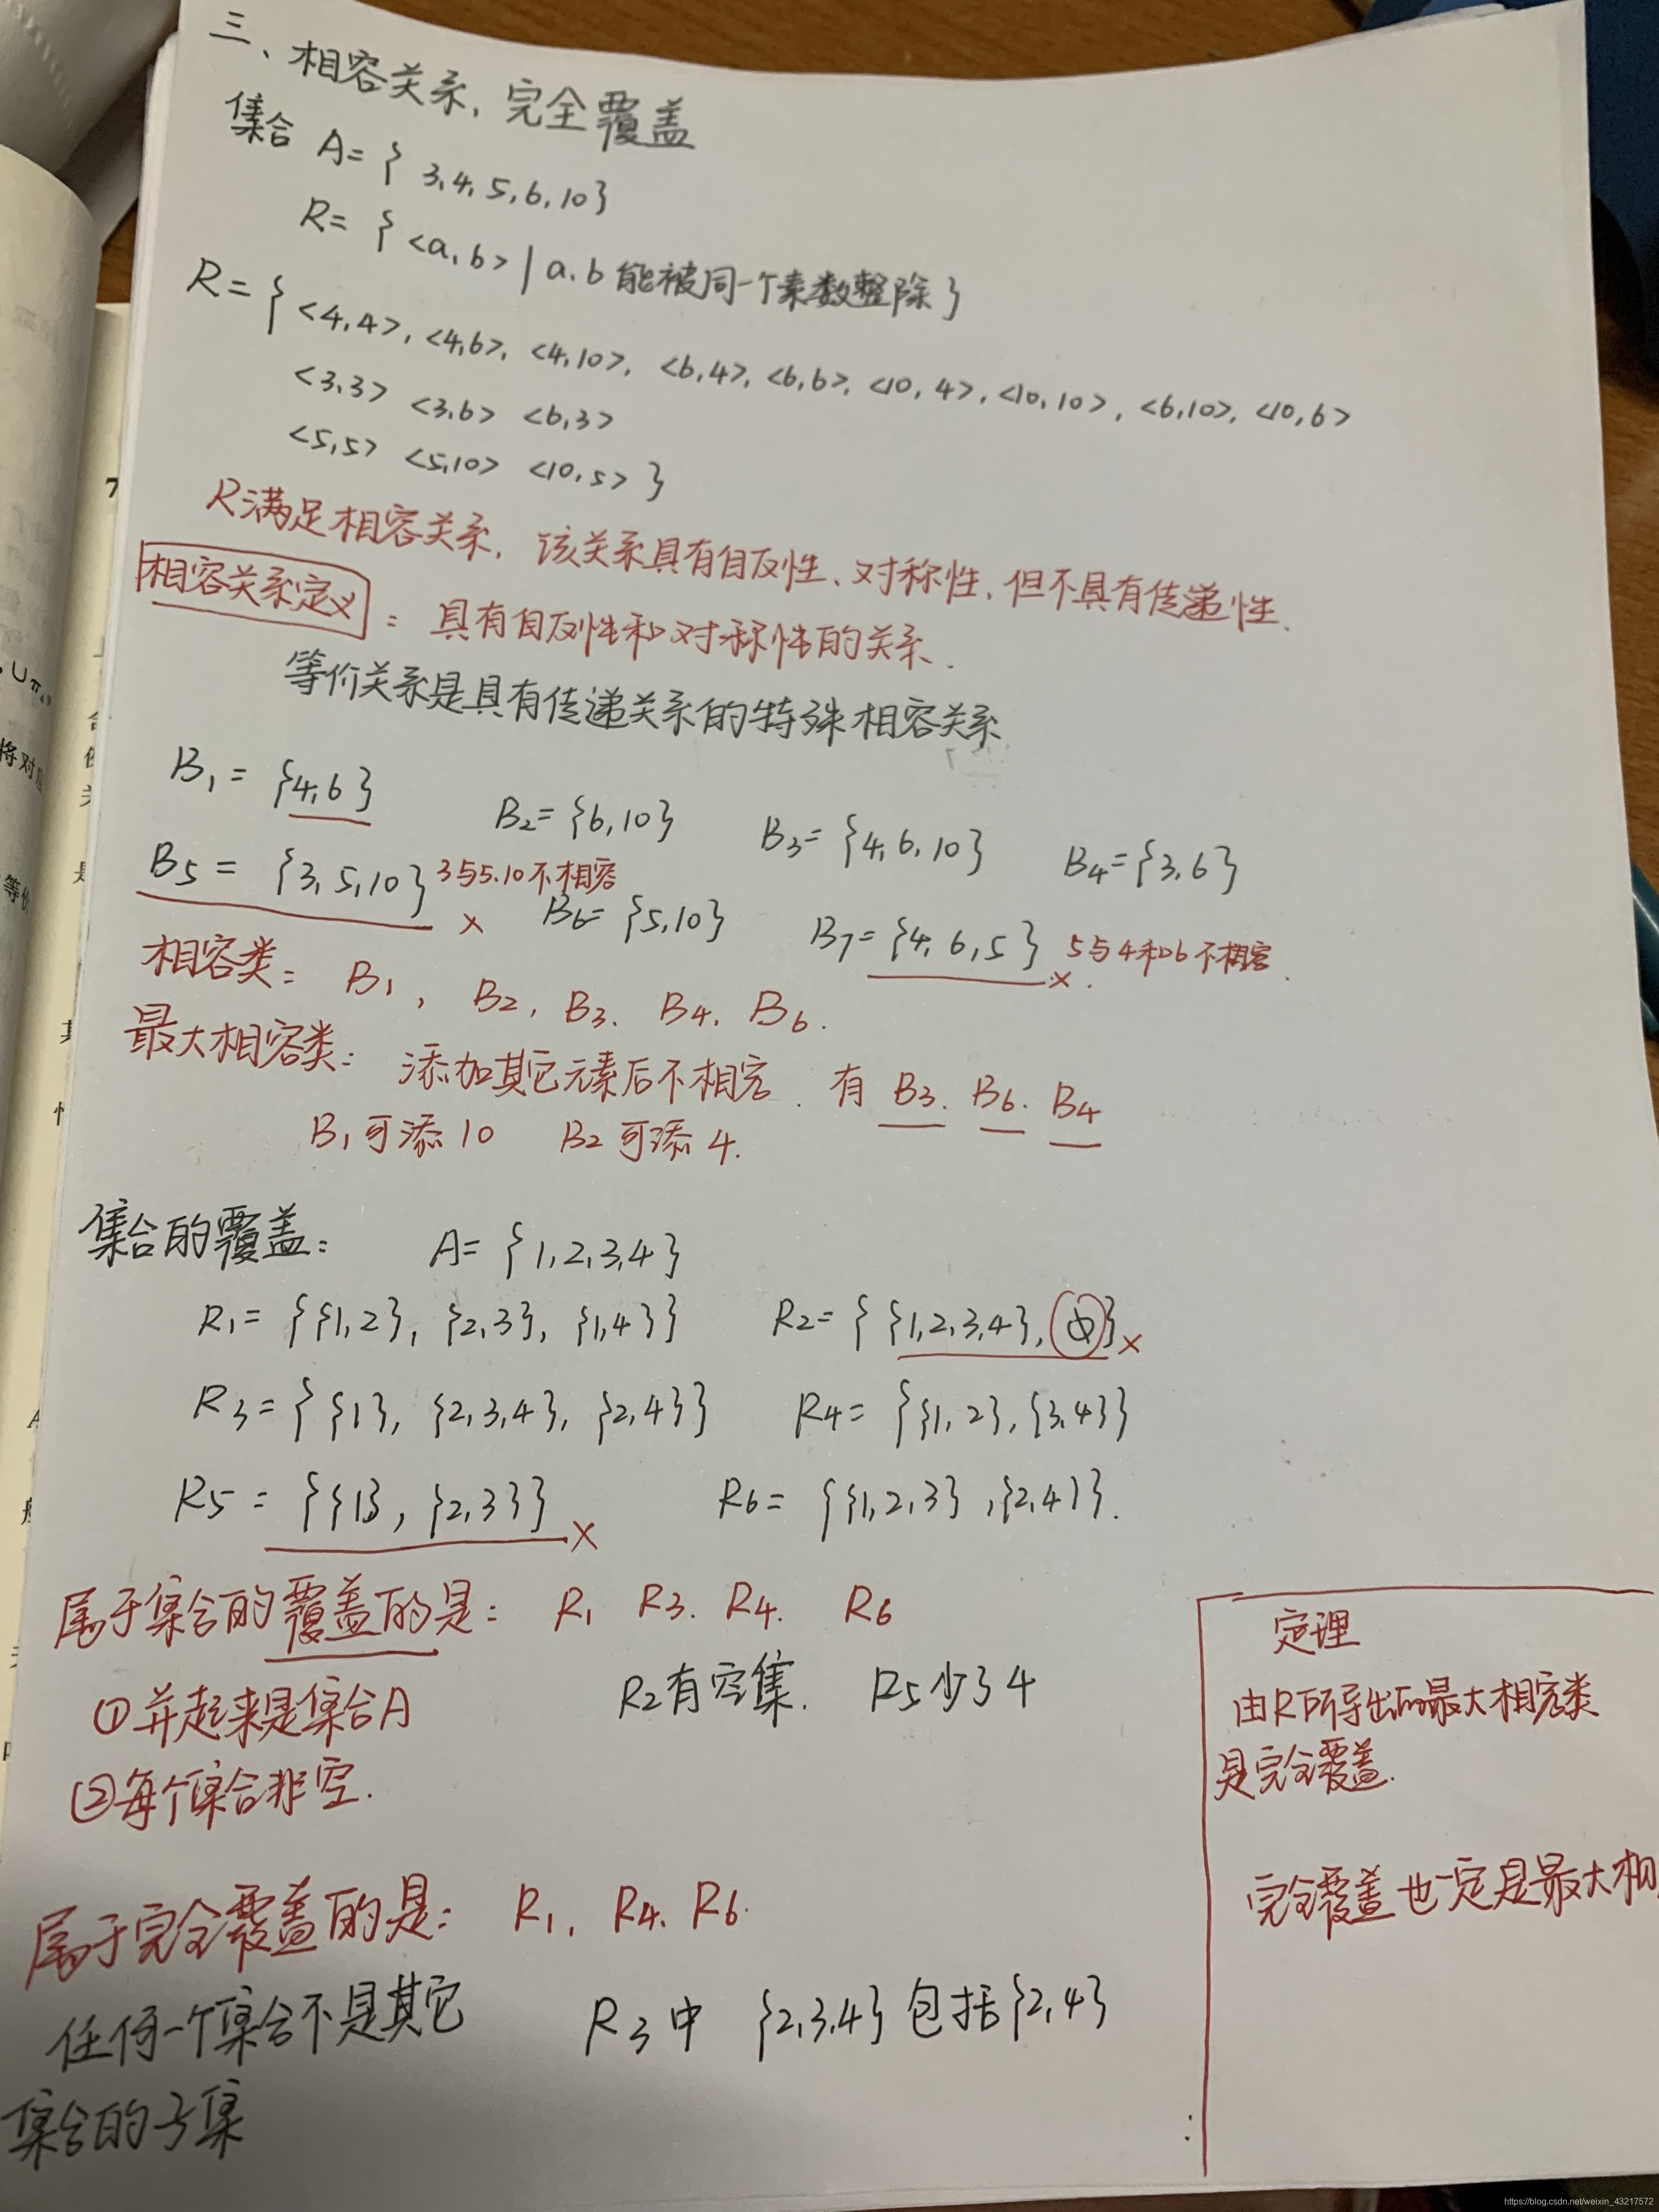 三、相容关系,完全覆盖
集合 A={ 3,4,5,6,10}
R={ <a,b> | a.b 能被同一个素数整除}
R={ <4,4>, <4,6>, <4,10>, <6,4>, <6,6>, <10,4>, <10,10>, <6,10>, <10,6>
<3,3> <3,6> <6,3>
<5,5> <5,10> <10,5> }
R满足相容关系, 该关系具有自反性、对称性, 但不具有传递性.
相容关系定义: 具有自反性和对称性的关系.
等价关系是具有传递关系的特殊相容关系
B₁ = {4,6} B₂= {6,10} B₃= {4,6,10} B₄={3,6}
B₅ = {3,5,10} 3与5.10不相容 × B₆= {5,10} B₇= {4,6,5} × 5与4和6不相容.
相容类: B₁, B₂, B₃. B₄. B₆.
最大相容类: 添加其它元素后不相容. 有 B₃. B₆. B₄
B₁可添10 B₂可添4.
集合的覆盖: A= {1,2,3,4}
R₁= {{1,2}, {2,3}, {1,4}} R₂= { {1,2,3,4}, Φ} ×
R₃= { {1}, {2,3,4}, {2,4}} R₄= {{1,2}, {3,4}}
R₅ = {{1}, {2,3}} × R₆= {{1,2,3}, {2,4}}.
属于集合的覆盖的是: R₁ R₃. R₄. R₆
①并起来是集合A R₂有空集. R₅少了4
②每个集合非空.
属于完全覆盖的是: R₁, R₄. R₆.
任何一个集合不是其它 R₃中 {2,3,4}包括{2,4}
集合的子集
定理
由R所导出的最大相容类
是完全覆盖.
完全覆盖也一定是最大相
7
∪π
将对应
等价
https://blog.csdn.net/weixin_43217572